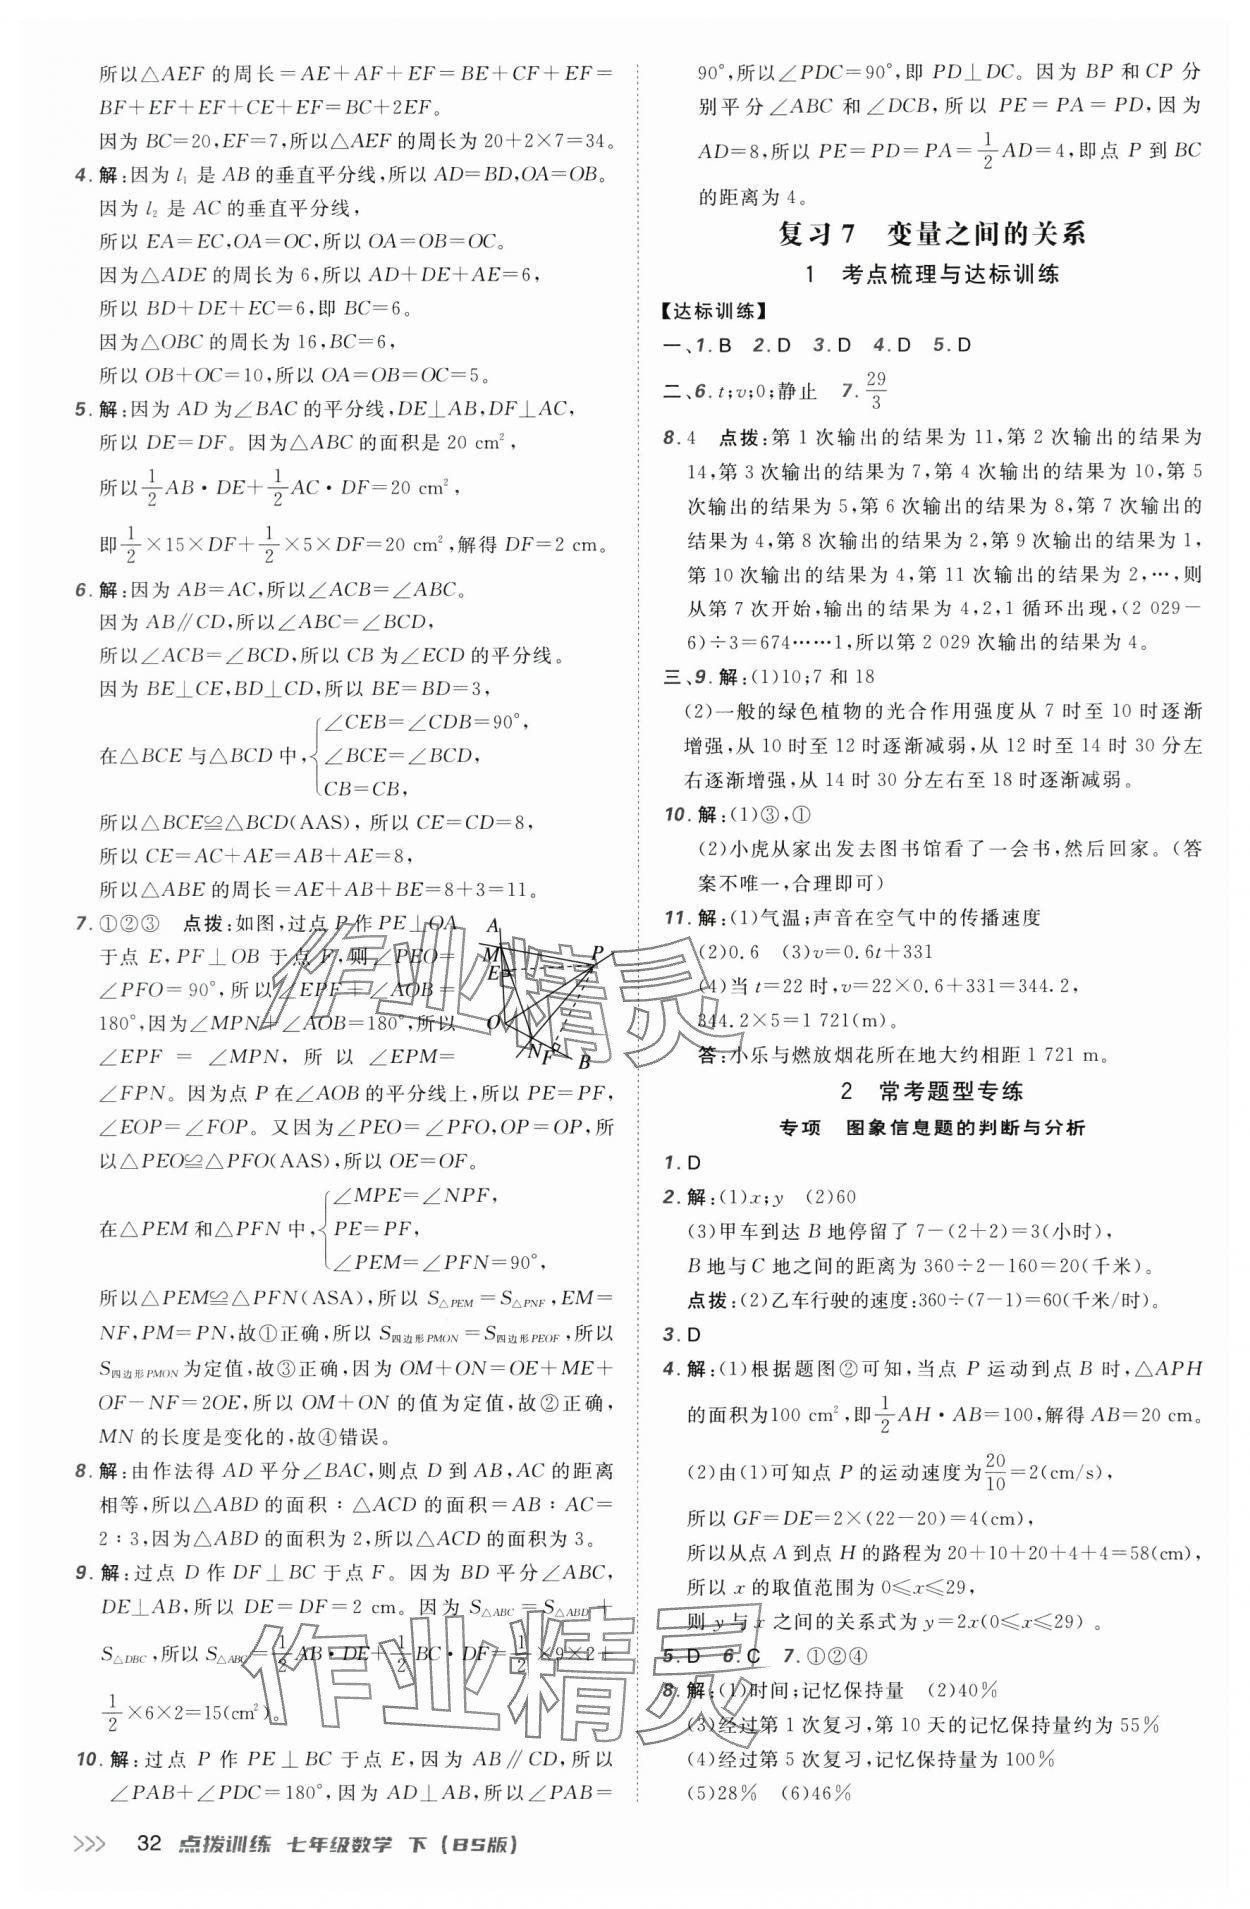 所以△AEF 的周长=AE+AF+EF=BE+CF+EF=
BF+EF+EF+CE+EF=BC+2EF。
因为 BC=20,EF=7,所以△AEF 的周长为 20+2×7=34。
4. 解:因为 l₁ 是 AB 的垂直平分线,所以 AD=BD,OA=OB。
因为 l₂ 是 AC 的垂直平分线,
所以 EA=EC,OA=OC,所以 OA=OB=OC。
因为△ADE 的周长为 6,所以 AD+DE+AE=6,
所以 BD+DE+EC=6,即 BC=6。
因为△OBC 的周长为 16,BC=6,
所以 OB+OC=10,所以 OA=OB=OC=5。
5. 解:因为 AD 为∠BAC 的平分线,DE⊥AB,DF⊥AC,
所以 DE=DF。因为△ABC 的面积是 20 cm²,
所以 1/2 AB·DE+1/2 AC·DF=20 cm²,
即 1/2×15×DF+1/2×5×DF=20 cm²,解得 DF=2 cm。
6. 解:因为 AB=AC,所以∠ACB=∠ABC。
因为 AB∥CD,所以∠ABC=∠BCD,
所以∠ACB=∠BCD,所以 CB 为∠ECD 的平分线。
因为 BE⊥CE,BD⊥CD,所以 BE=BD=3,
∠CEB=∠CDB=90°,
在△BCE 与△BCD 中, ∠BCE=∠BCD,
CB=CB,
所以△BCE≌△BCD(AAS),所以 CE=CD=8,
所以 CE=AC+AE=AB+AE=8,
所以△ABE 的周长=AE+AB+BE=8+3=11。
7. ①②③ 点拨:如图,过点 P 作 PE⊥OA
于点 E,PF⊥OB 于点 F,则∠PEO=
∠PFO=90°,所以∠EPF+∠AOB=
180°,因为∠MPN+∠AOB=180°,所以
∠EPF=∠MPN,所以∠EPM=
∠FPN。因为点 P 在∠AOB 的平分线上,所以 PE=PF,
∠EOP=∠FOP。又因为∠PEO=∠PFO,OP=OP,所
以△PEO≌△PFO(AAS),所以 OE=OF。
∠MPE=∠NPF,
在△PEM 和△PFN 中, PE=PF,
∠PEM=∠PFN=90°,
所以△PEM≌△PFN(ASA),所以 S△PEM=S△PNF,EM=
NF,PM=PN,故①正确,所以 S四边形PMON=S四边形PEOF,所以
S四边形PMON为定值,故③正确,因为 OM+ON=OE+ME+
OF-NF=2OE,所以 OM+ON 的值为定值,故②正确,
MN 的长度是变化的,故④错误。
A
M
E
P
O
N
F
B
8. 解:由作法得 AD 平分∠BAC,则点 D 到 AB,AC 的距离
相等,所以△ABD 的面积∶△ACD 的面积=AB∶AC=
2∶3,因为△ABD 的面积为 2,所以△ACD 的面积为 3。
9. 解:过点 D 作 DF⊥BC 于点 F。因为 BD 平分∠ABC,
DE⊥AB,所以 DE=DF=2 cm。因为 S△ABC=S△ABD+
S△DBC,所以 S△ABC=1/2 AB·DE+1/2 BC·DF=1/2×9×2+
1/2×6×2=15(cm²)。
10. 解:过点 P 作 PE⊥BC 于点 E,因为 AB∥CD,所以
∠PAB+∠PDC=180°,因为 AD⊥AB,所以∠PAB=
32 点拨训练 七年级数学 下(BS版)
90°,所以∠PDC=90°,即 PD⊥DC。因为 BP 和 CP 分
别平分∠ABC 和∠DCB,所以 PE=PA=PD,因为
AD=8,所以 PE=PD=PA=1/2 AD=4,即点 P 到 BC
的距离为 4。
复习7 变量之间的关系
1 考点梳理与达标训练
【达标训练】
一、1. B 2. D 3. D 4. D 5. D
二、6. t;v;0;静止 7. 29/3
8. 4 点拨:第 1 次输出的结果为 11,第 2 次输出的结果为
14,第 3 次输出的结果为 7,第 4 次输出的结果为 10,第 5
次输出的结果为 5,第 6 次输出的结果为 8,第 7 次输出的
结果为 4,第 8 次输出的结果为 2,第 9 次输出的结果为 1,
第 10 次输出的结果为 4,第 11 次输出的结果为 2,…,则
从第 7 次开始,输出的结果为 4,2,1 循环出现,(2 029-
6)÷3=674……1,所以第 2 029 次输出的结果为 4。
三、9. 解:(1)10;7 和 18
(2)一般的绿色植物的光合作用强度从 7 时至 10 时逐渐
增强,从 10 时至 12 时逐渐减弱,从 12 时至 14 时 30 分左
右逐渐增强,从 14 时 30 分左右至 18 时逐渐减弱。
10. 解:(1)③,①
(2)小虎从家出发去图书馆看了一会书,然后回家。(答
案不唯一,合理即可)
11. 解:(1)气温;声音在空气中的传播速度
(2)0.6 (3)v=0.6t+331
(4)当 t=22 时,v=22×0.6+331=344.2,
344.2×5=1 721(m)。
答:小乐与燃放烟花所在地大约相距 1 721 m。
2 常考题型专练
专项 图象信息题的判断与分析
1. D
2. 解:(1)x;y (2)60
(3)甲车到达 B 地停留了 7-(2+2)=3(小时),
B 地与 C 地之间的距离为 360÷2-160=20(千米)。
点拨:(2)乙车行驶的速度:360÷(7-1)=60(千米/时)。
3. D
4. 解:(1)根据题图②可知,当点 P 运动到点 B 时,△APH
的面积为100 cm²,即 1/2 AH·AB=100,解得 AB=20 cm。
(2)由(1)可知点 P 的运动速度为 20/10=2(cm/s),
所以 GF=DE=2×(22-20)=4(cm),
所以从点 A 到点 H 的路程为 20+10+20+4+4=58(cm),
所以 x 的取值范围为 0≤x≤29,
则 y 与 x 之间的关系式为 y=2x(0≤x≤29)。
5. D 6. C 7. ①②④
8. 解:(1)时间;记忆保持量 (2)40%
(3)经过第 1 次复习,第 10 天的记忆保持量约为 55%
(4)经过第 5 次复习,记忆保持量为 100%
(5)28% (6)46%
作业精灵
作业精灵